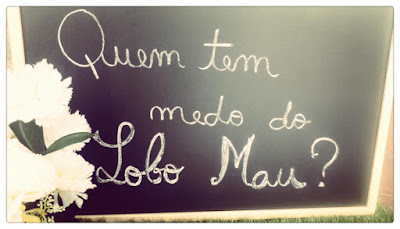 Quem tem
medo do
Lobo Mau?